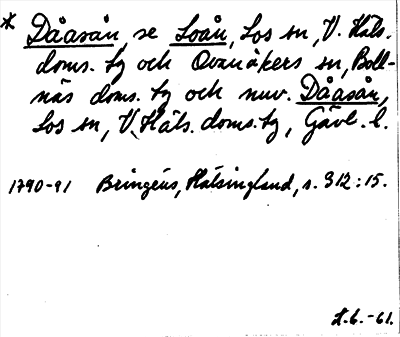 * Dåasån, se Loån, Los sn, V. Häls.
doms. tg och Ovanåkers sn, Boll-
näs doms. tg och nuv. Dåasån,
Los sn, V. Häls. doms. tg, Gävl. l.
1790-91 Bringéus, Hälsingland, s. 312:15.
L.L.-61.